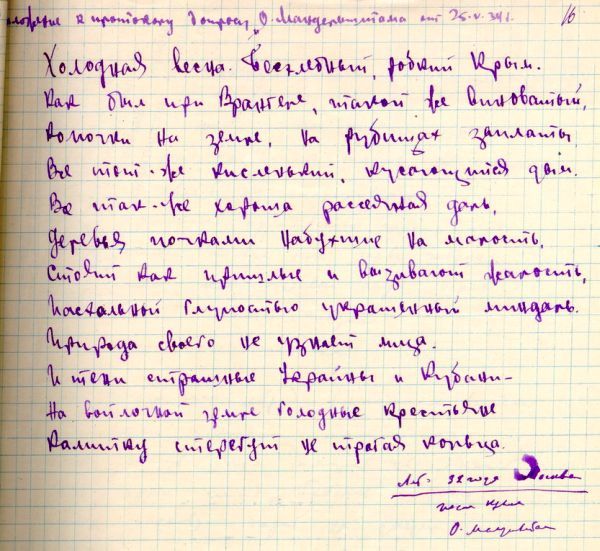 приложение к протоколу допроса О. Мандельштама от 25.V.34 г. 16
Холодная весна. Бесхлебный, робкий Крым.
Как был при Врангеле, такой же виноватый,
Колючки на земле, на рубищах заплаты
Все тот-же кисленький, кусающийся дым.
Все так-же хороша рассеянная даль,
Деревья, почками набухшие на малость,
Стоят как пришлые и вызывают жалость,
Пасхальной глупостью украшенный миндаль.
Природа своего не узнает лица.
И тени страшные Украйны и Кубани –
На войлочной земле голодные крестьяне
Калитку стерегут не трогая кольца.
32 года Москва
после Крыма
О. Мандельштам